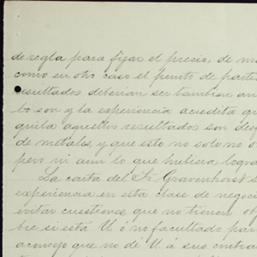 de regla para fijar el precio de m
como en otro caso el punto de parti
resultados deberian ser tambien an
lo son y la esperiencia acredita q
quila aquellos resultados son des
de metales, y que esto no solo no o
pero ni aun lo que hubiera logra
La carta del Sr. Gravenhorst
esperiencia en esta clase de negoc
evitar cuestiones que no tienen ob
bre si está U. ó no facultado para
aconsejo que no dé U. á sus contra